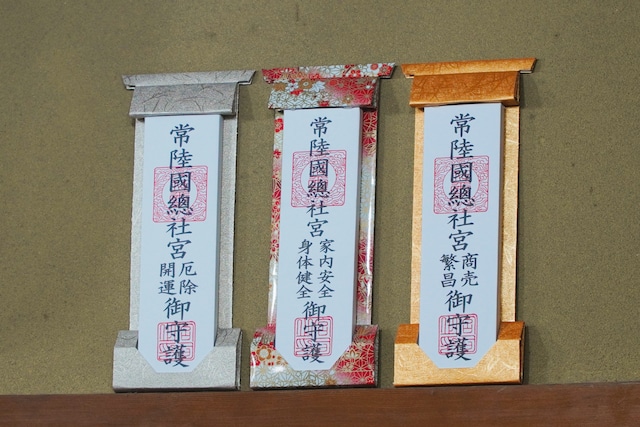 常陸國總社宮
厄除
開運
御守護
常陸國總社宮
家内安全
身体健全
御守護
常陸國總社宮
商売
繁昌
御守護